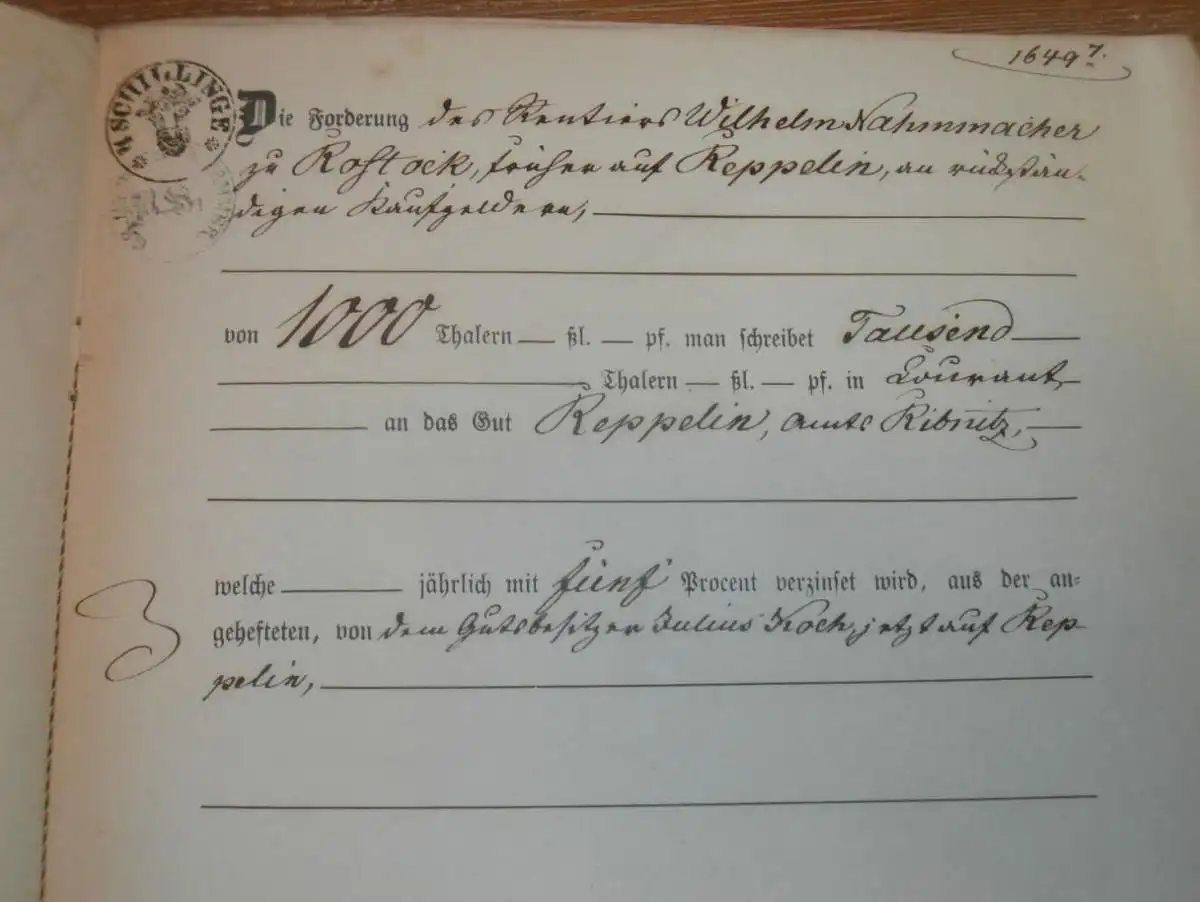 1649⁷·
4 SCHILLINGE
Die Forderung des Rentiers Wilhelm Nahmmacher
zu Rostock, früher auf Reppelin, an rückstän-
digen Kaufgeldern,
von 1000 Thalern — ßl. — pf. man schreibet Tausend
Thalern — ßl. — pf. in Courant
an das Gut Reppelin, Amts Ribnitz,
welche jährlich mit fünf Procent verzinset wird, aus der an-
gehefteten, von dem Gutsbesitzer Julius Koch, jetzt auf Rep-
pelin,
3